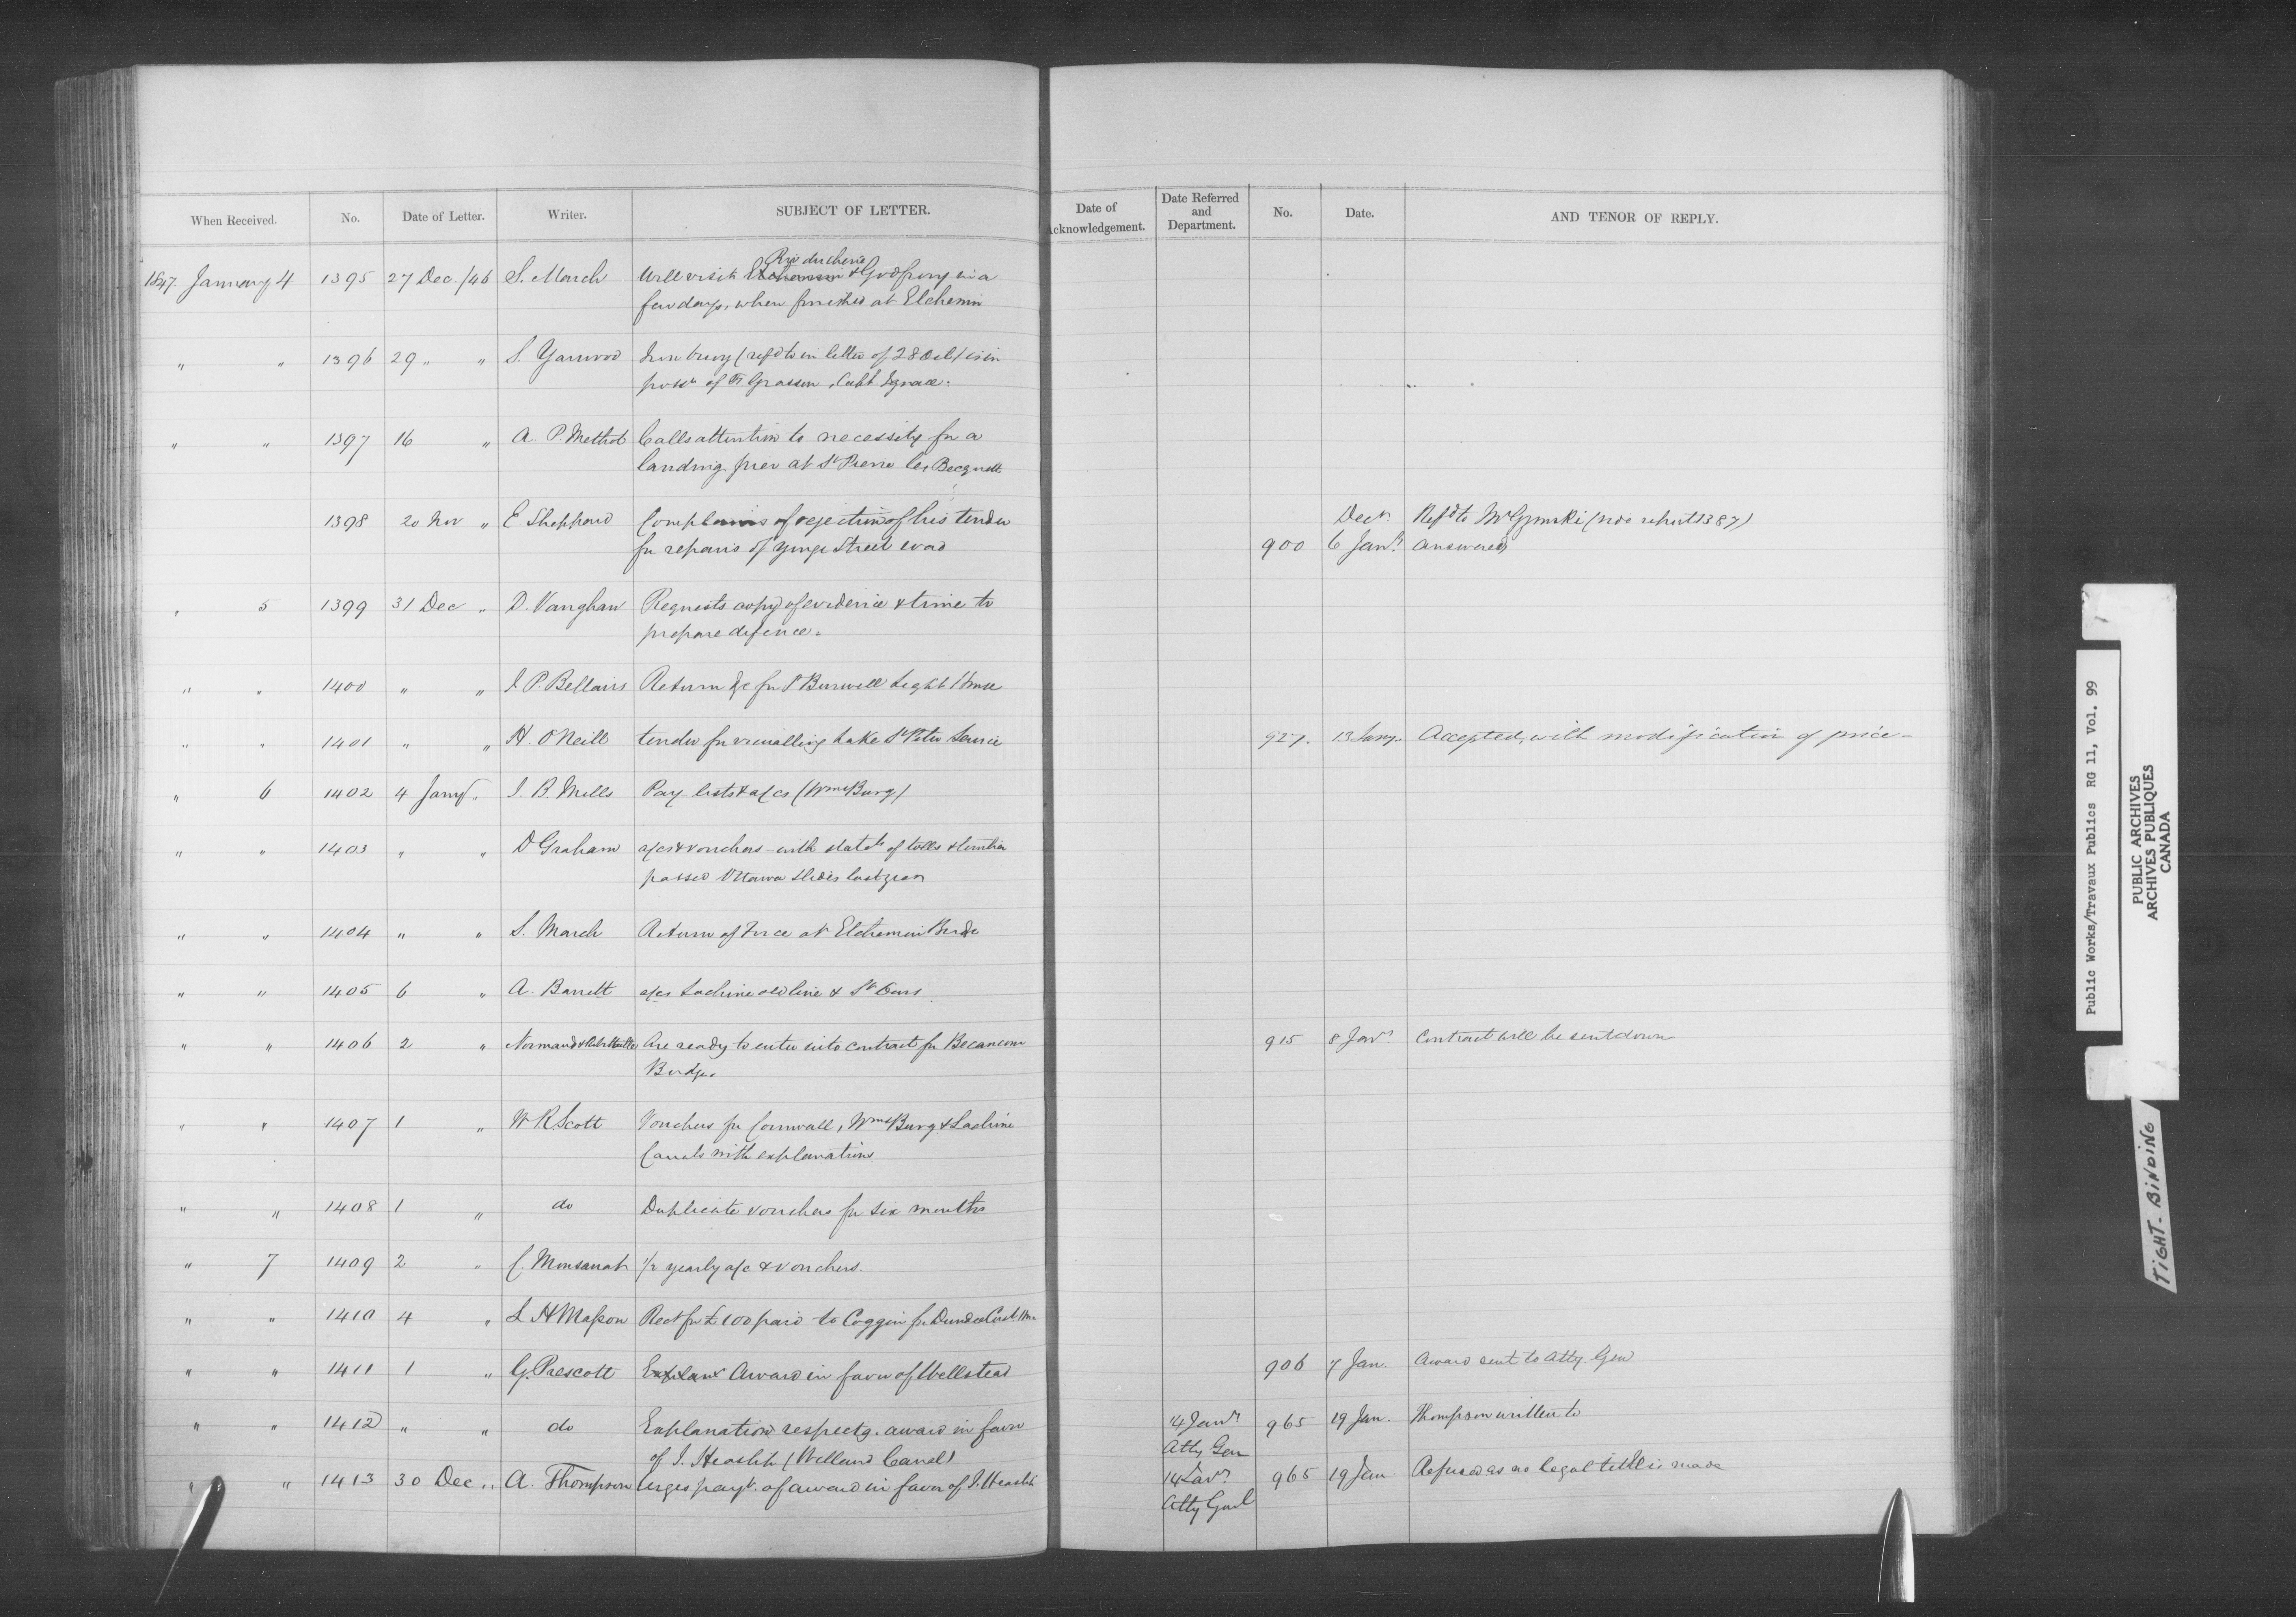 When Received. No. Date of Letter. Writer. SUBJECT OF LETTER. Date of Acknowledgement. Date Referred and Department. No. Date. AND TENOR OF REPLY.
Riv du chene
1847. January 4 1395 27 Dec. /46 S. March Will visit & Godfroy in a
few days, when finished at Etchemin
" " 1396 29 " " S. Yarwood Iron buoy (refd to in letter of 28 Oct) is in
possn of Fr Grassen, Capt Ignace.
" " 1397 16 " A. P. Methot Calls attention to necessity for a
landing pier at St Pierre les Becquets
1398 20 Nov " E Sheppard Complains of rejection of his tender Decr. Refd to Mr Gzowski (vide report 1387)
for repairs of Yonge Street road 900 6 Jany. answered
" 5 1399 31 Dec " D. Vaughan Requests copy of evidence & time to
prepare defence.
" " 1400 " " J. P. Bellairs Return &c for P Burwell Light House
" " 1401 " " H. O'Neill tender for victualling Lake St Peter Service 927. 13 Jany. Accepted, with modification of price -
" 6 1402 4 Jany " J. B. Mills Pay lists & a/cs (WmsBurg)
" " 1403 " " D Graham a/cs & vouchers with statets of tolls & timber
passed Ottawa Slides last year
" " 1404 " " S. March Return of Force at Etchemin Bridge
" " 1405 6 " A. Barrett a/cs Lachine old line & St Ours
" " 1406 2 " Normand & Are ready to enter into contract for Becancour 915 8 Jany. Contract will be sent down
Bridge.
" " 1407 1 " W R Scott Vouchers for Cornwall, WmsBurg & Lachine
Canals with explanations
" " 1408 1 " do Duplicate vouchers for six months
" 7 1409 2 " C. Monsarrat 1/2 yearly a/c & vouchers.
" " 1410 4 " L H Masson Rect for £100 paid to Coggin for Dundee Cust Hou
" " 1411 1 " G. Prescott Explan Award in favor of Wellstead 906 7 Jan. Award sent to Atty Gen
" " 1412 " " do Explanation respectg. award in favor 14 Jany 965 19 Jan. Thompson written to
of J. Heaslip (Welland Canal) Atty Gen
" " 1413 30 Dec " A. Thompson Urges payt. of award in favor of J. Heaslip 14 Jany 965 19 Jan. Refused as no legal title is made
Atty Genl
Public Works/Travaux Publics RG 11, Vol. 99
PUBLIC ARCHIVES
ARCHIVES PUBLIQUES
CANADA
TIGHT-BINDING